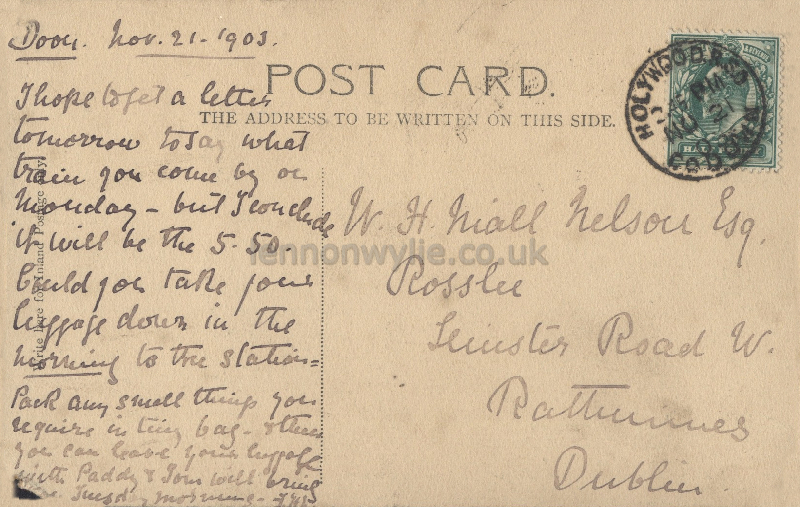 Doon. Nov. 21 - 1903.
POST CARD.
THE ADDRESS TO BE WRITTEN ON THIS SIDE.
I hope to get a letter
tomorrow to say what
train you come by on
Monday - but I conclude
it will be the 5-50-
Could you take your
luggage down in the
morning to the station =
Pack any small things you
require in tiny bag - then
you can leave your luggage
with Paddy & Tom will bring
Tuesday morning -
Write here for Inland Postage only.
W. H. Niall Nelson Esq.
Rosslee
Leinster Road W.
Rathmines
Dublin.
HOLYWOOD R.S.O
CO. DOWN
HALF
lennonwylie.co.uk